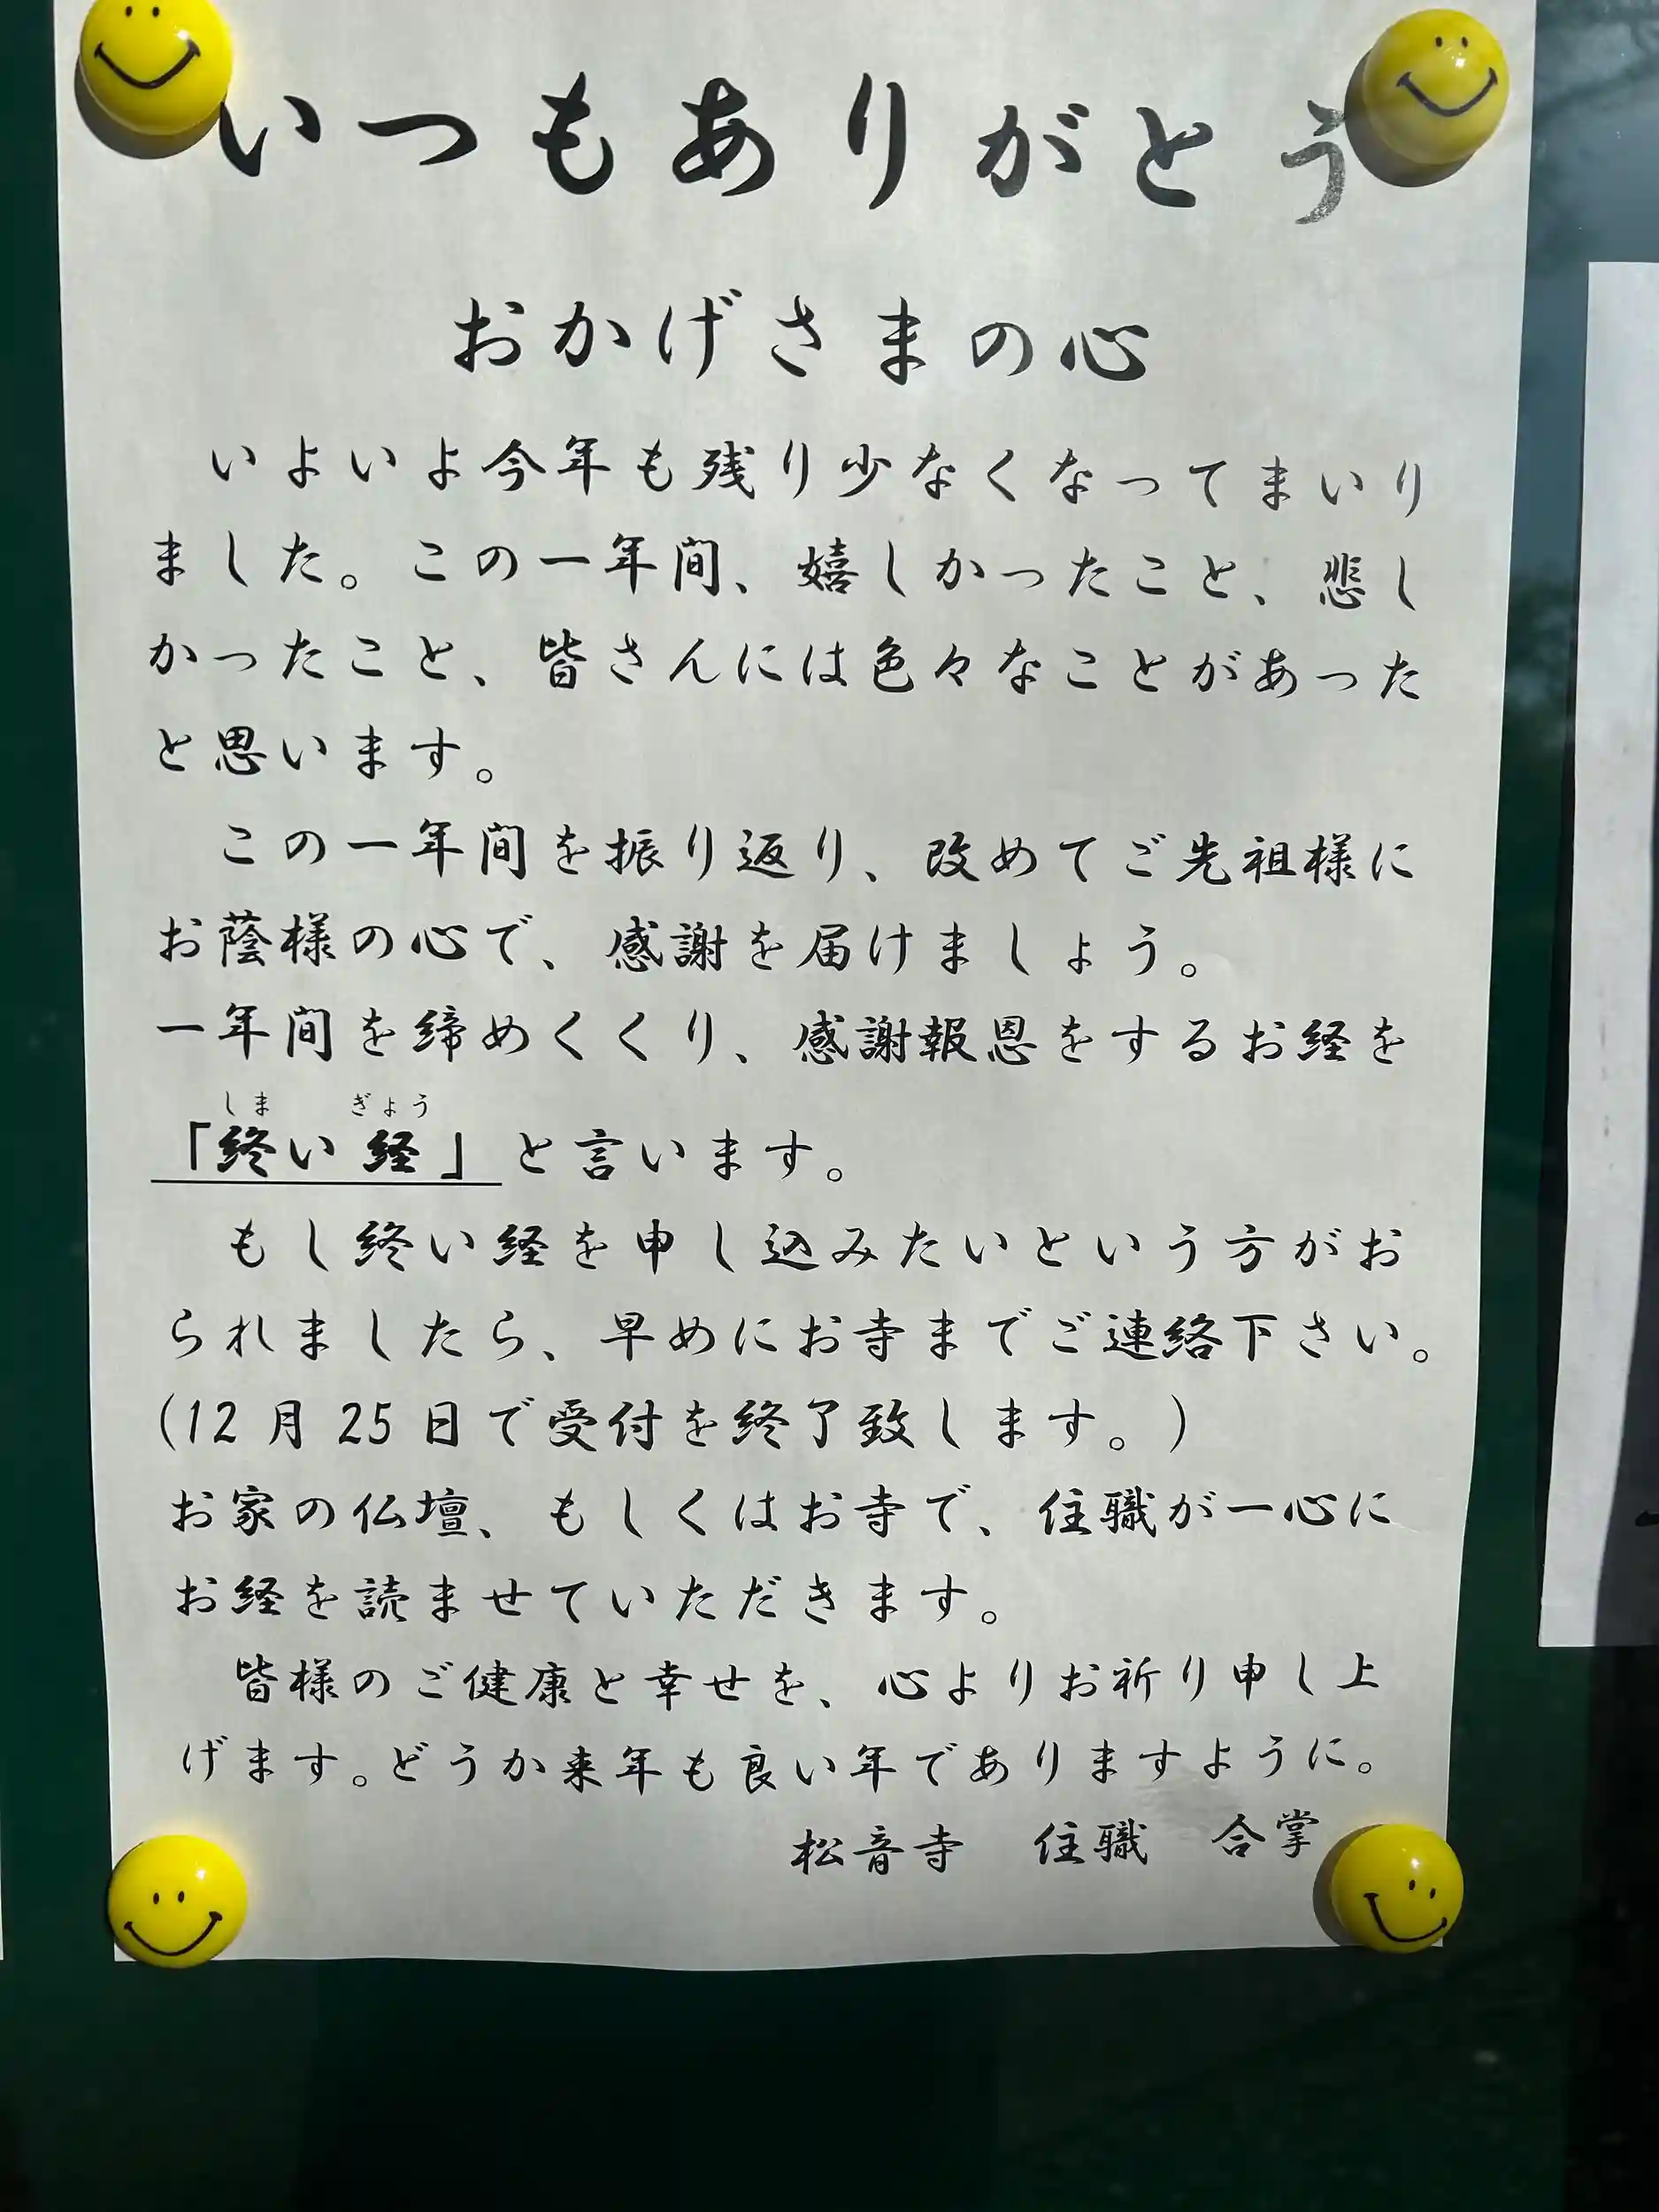 いつもありがとう
おかげさまの心
いよいよ今年も残り少なくなってまいり
ました。この一年間、嬉しかったこと、悲し
かったこと、皆さんには色々なことがあった
と思います。
この一年間を振り返り、改めてご先祖様に
お蔭様の心で、感謝を届けましょう。
一年間を締めくくり、感謝報恩をするお経を
しま ぎょう
「終い経」と言います。
もし終い経を申し込みたいという方がお
られましたら、早めにお寺までご連絡下さい。
(12月25日で受付を終了致します。)
お家の仏壇、もしくはお寺で、住職が一心に
お経を読ませていただきます。
皆様のご健康と幸せを、心よりお祈り申し上
げます。どうか来年も良い年でありますように。
松音寺 住職 合掌